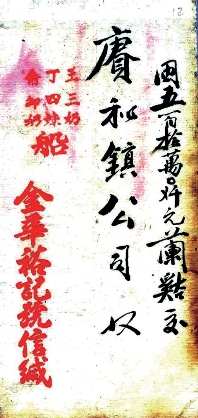 國五百拾萬〇仟元蘭䴵交
賡和鎮公司收
玉三奶
丁四妹
命卸奶
船
金華裕記號信緘
12